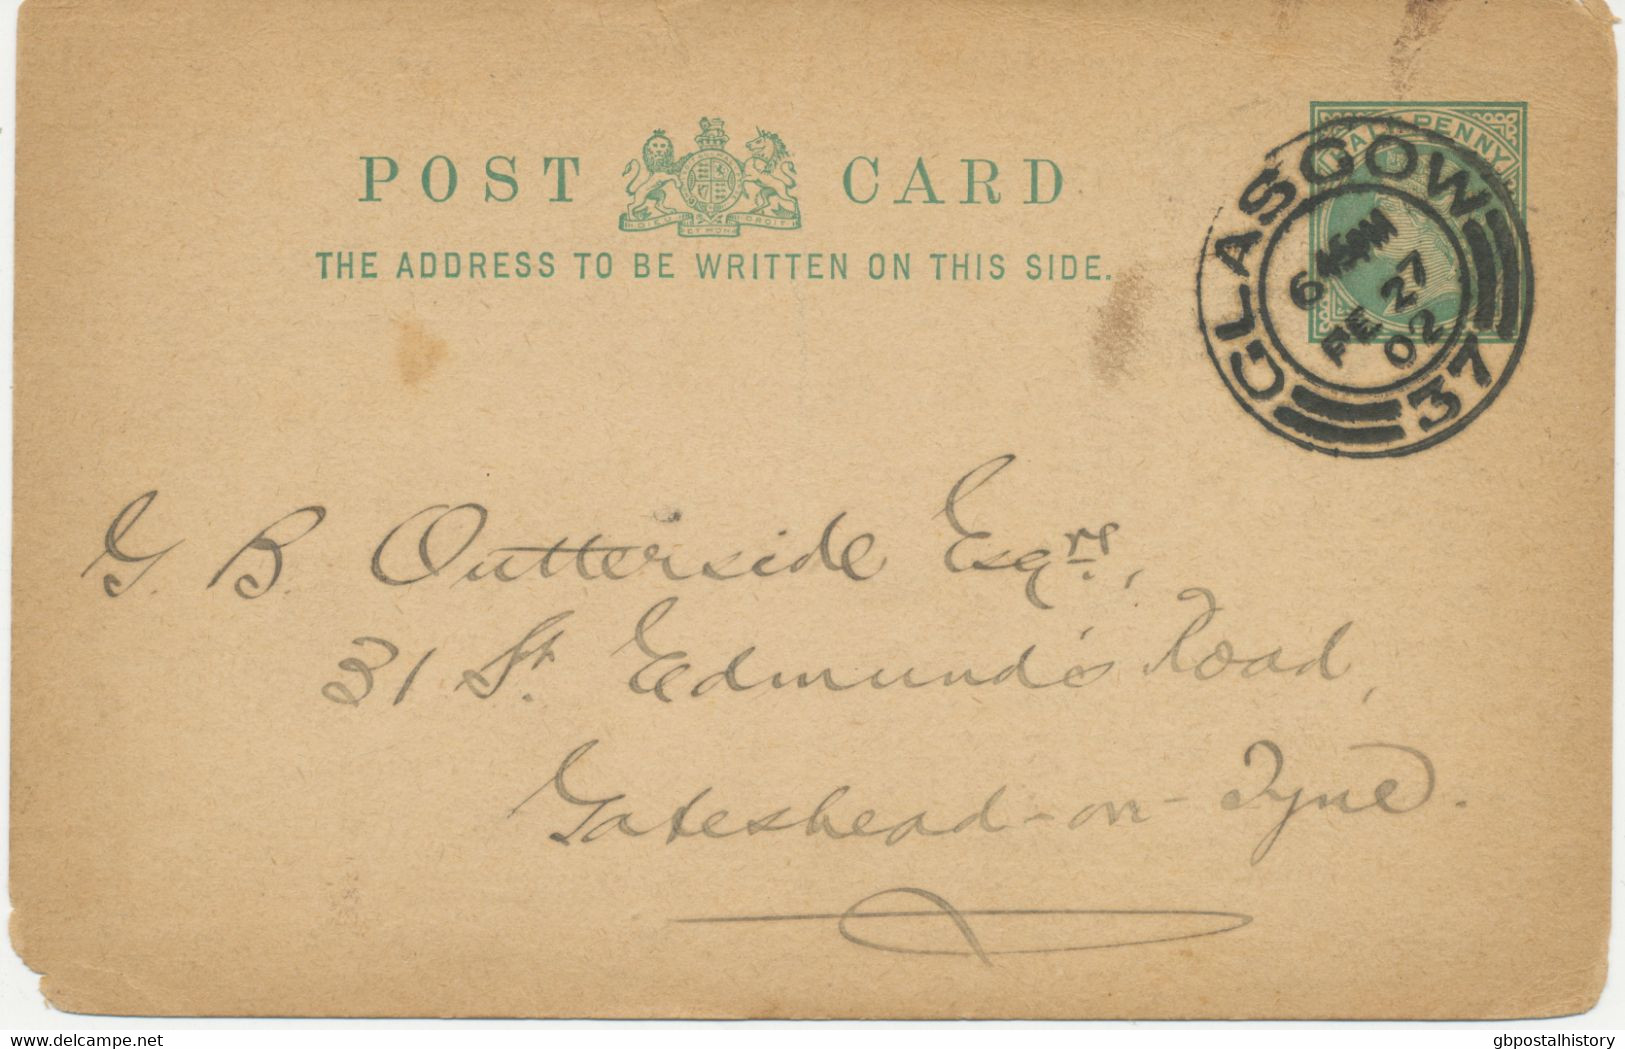 POST CARD
DIEU ET MON DROIT
THE ADDRESS TO BE WRITTEN ON THIS SIDE.
HALFPENNY
GLASGOW
6 45PM
FE 27
02
37
G. B. Outterside Esqre.,
31 St. Edmund's Road,
Gateshead-on-Tyne.
delcampe.net
gbpostalhistory